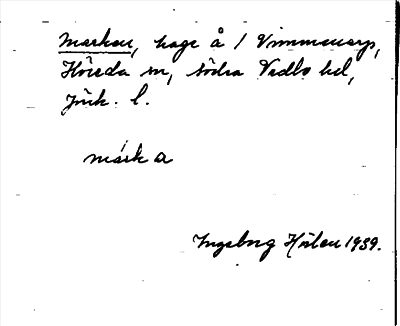 Marken, hage å / Vimmenarp,
Höreda sn, södra Vedbo hd,
Jönk. l.
márk a
Ingeborg Hûlen 1939.